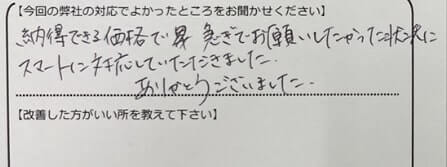 【今回の弊社の対応でよかったところをお聞かせください】
納得できる価格で 急ぎでお願いしたかった状況に
スマートに対応していただきました.
ありがとうございました.
【改善した方がいい所を教えて下さい】